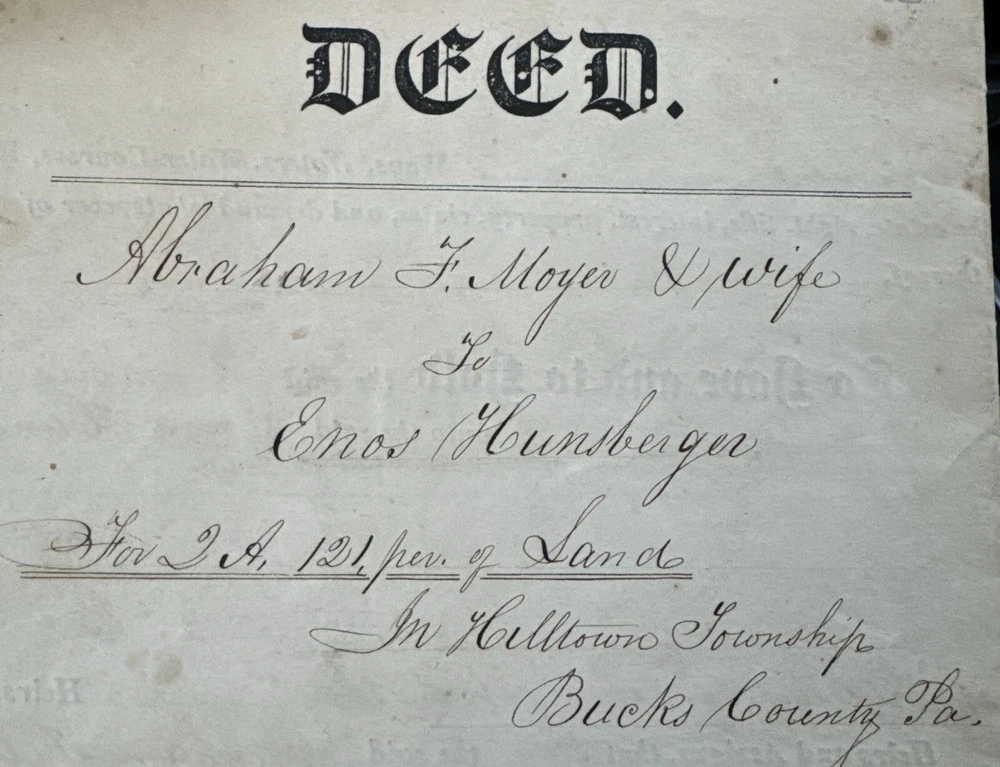 DEED.
Abraham F. Moyer & wife
To
Enos Hunsberger
For 2 A. 121, per. of Land
In Hilltown Township
Bucks County Pa.